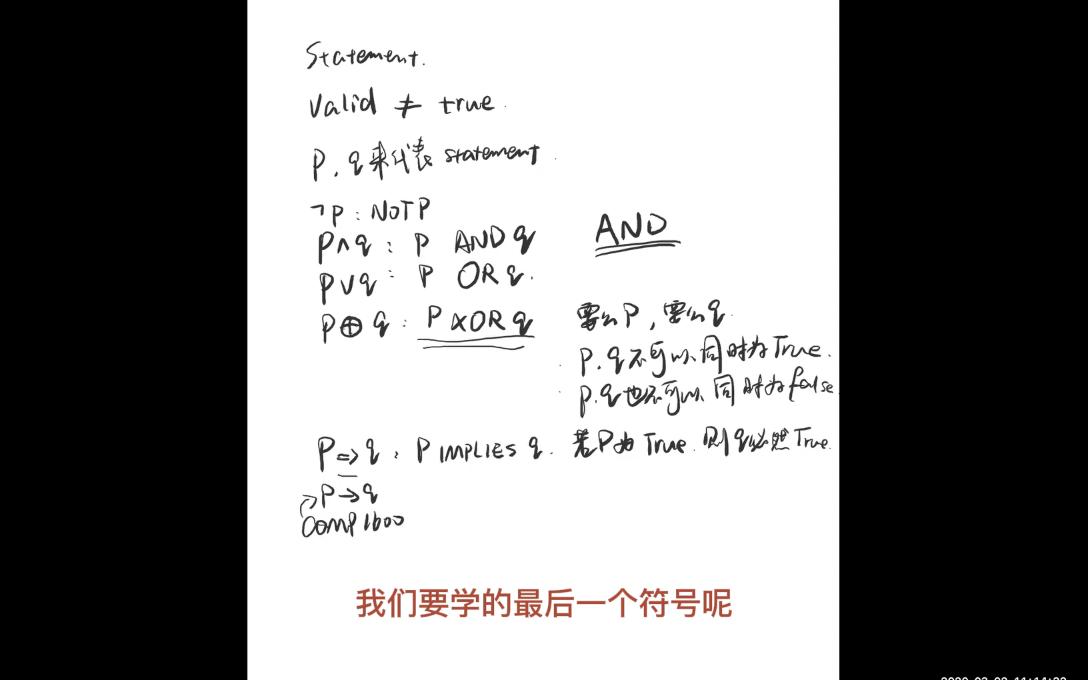 Statement.
Valid ≠ true.
P, q来代表 statement.
¬P : NOT P
P∧q : P AND q
AND
P∨q : P OR q.
P⊕q : P XOR q
要么P, 要么q.
P.q不可以同时为True.
P.q也不可以同时为false
P⇒q , P IMPLIES q. 若P为True. 则q必然True.
P→q
COMP1600
我们要学的最后一个符号呢